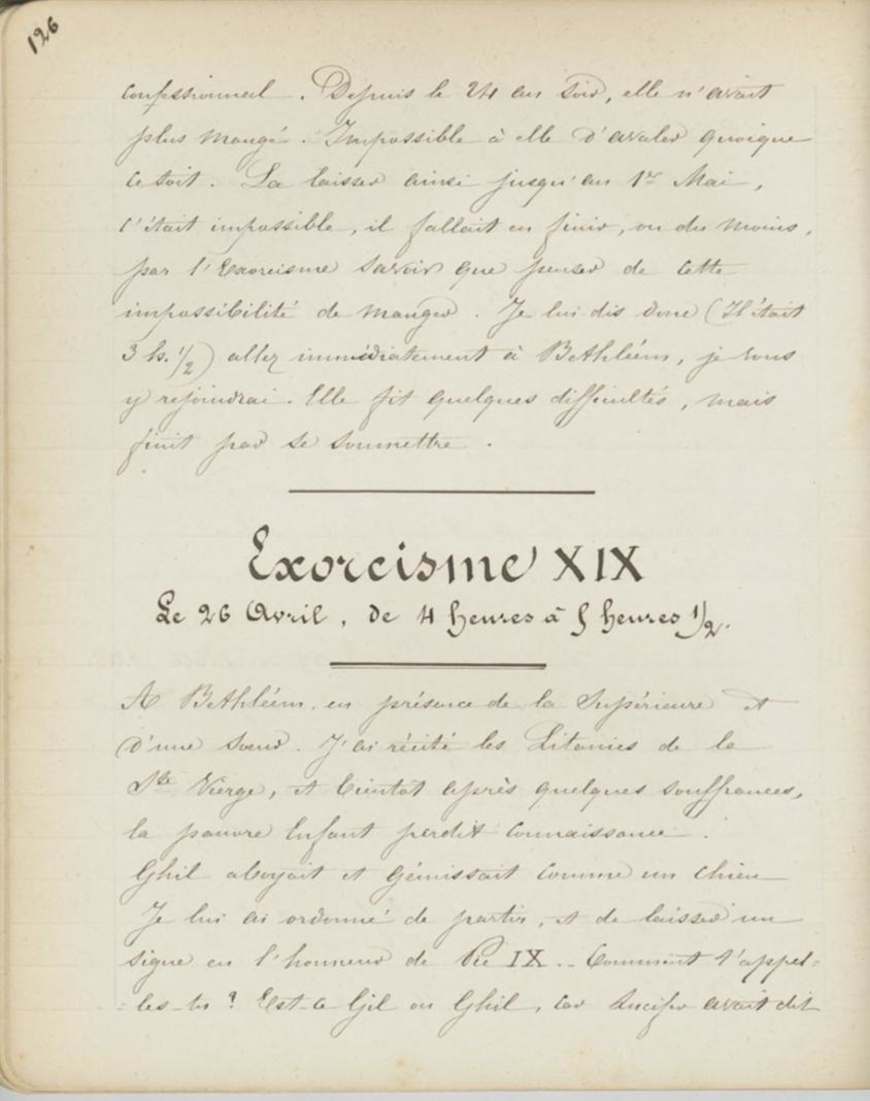 126
confessionnal. Depuis le 24 au soir, elle n'avait
plus mangé. Impossible à elle d'avaler quoique
ce soit. La laisser ainsi jusqu'au 1er Mai,
c'était impossible, il fallait en finir, ou du moins,
par l'Exorcisme savoir que penser de cette
impossibilité de manger. Je lui dis donc (Il était
3 h. 1/2) allez immédiatement à Bethléem, je vous
y rejoindrai. Elle fit quelques difficultés, mais
finit par se soumettre.
Exorcisme XIX
Le 26 Avril, de 4 heures à 5 heures 1/2.
A Bethléem, en présence de la Supérieure et
d'une soeur. J'ai récité les Litanies de la
Ste Vierge, et bientôt après quelques souffrances,
la pauvre Enfant perdit connaissance.
Ghil aboyait et gémissait comme un chien
Je lui ai ordonné de partir, et de laisser un
signe en l'honneur de Pie IX. _ Comment t'appel=
=les-tu ? Est-ce Gil ou Ghil, car Lucifer avait dit